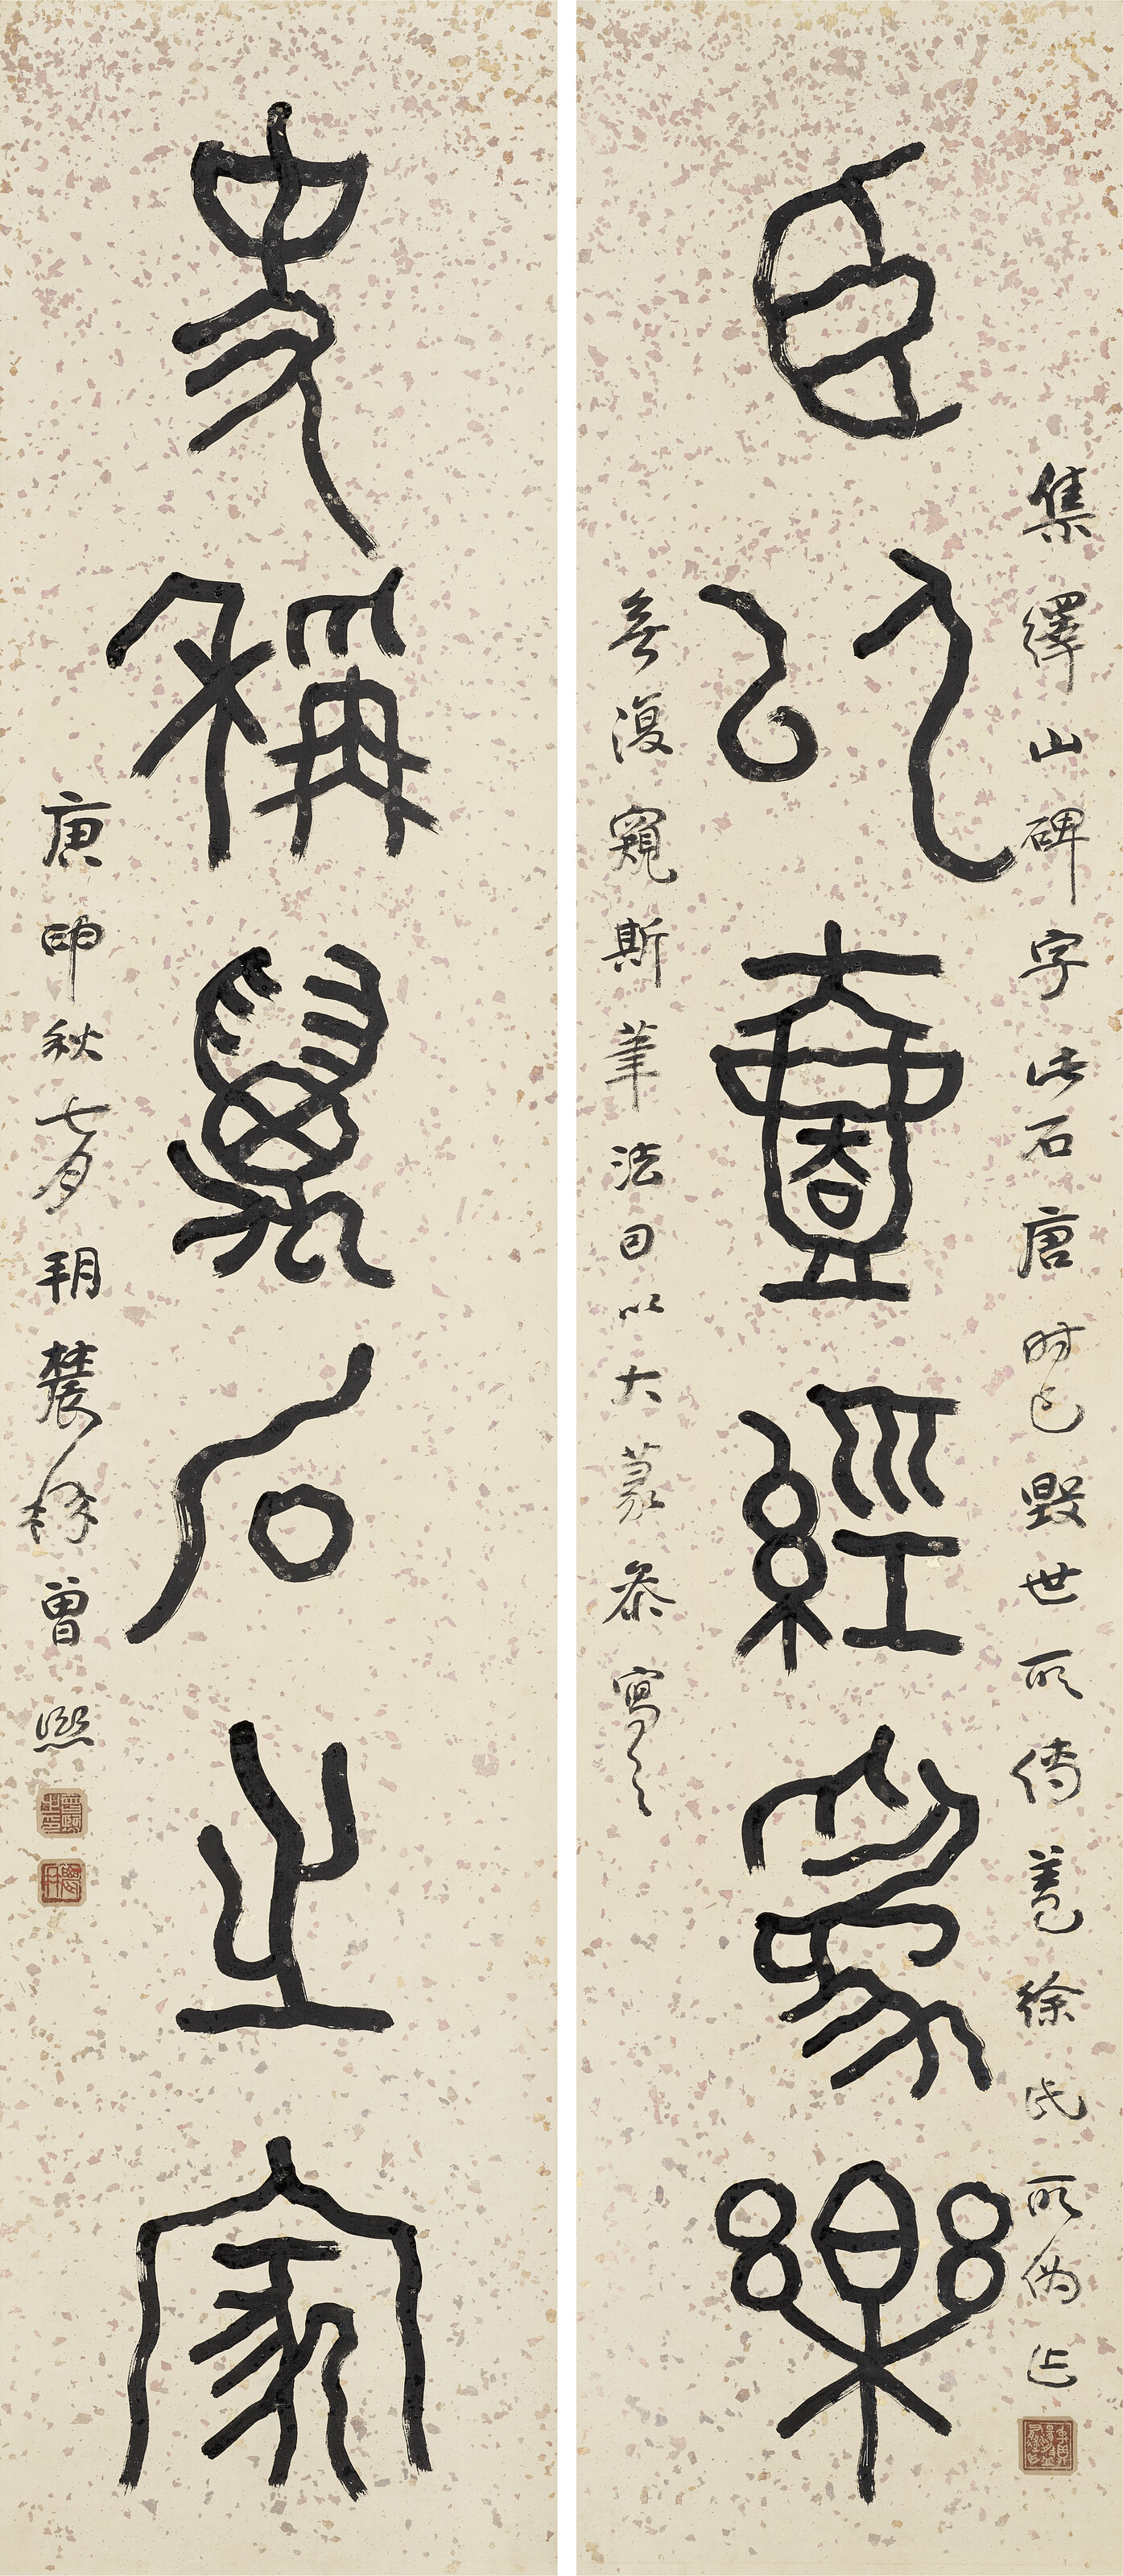 集繹山碑字此石唐時已毀世所傳蓋徐氏所偽作
臣以壹經為樂
無復窺斯筆法因以大篆參寫之
史稱萬石之家
庚申秋七月朔農髯曾熙